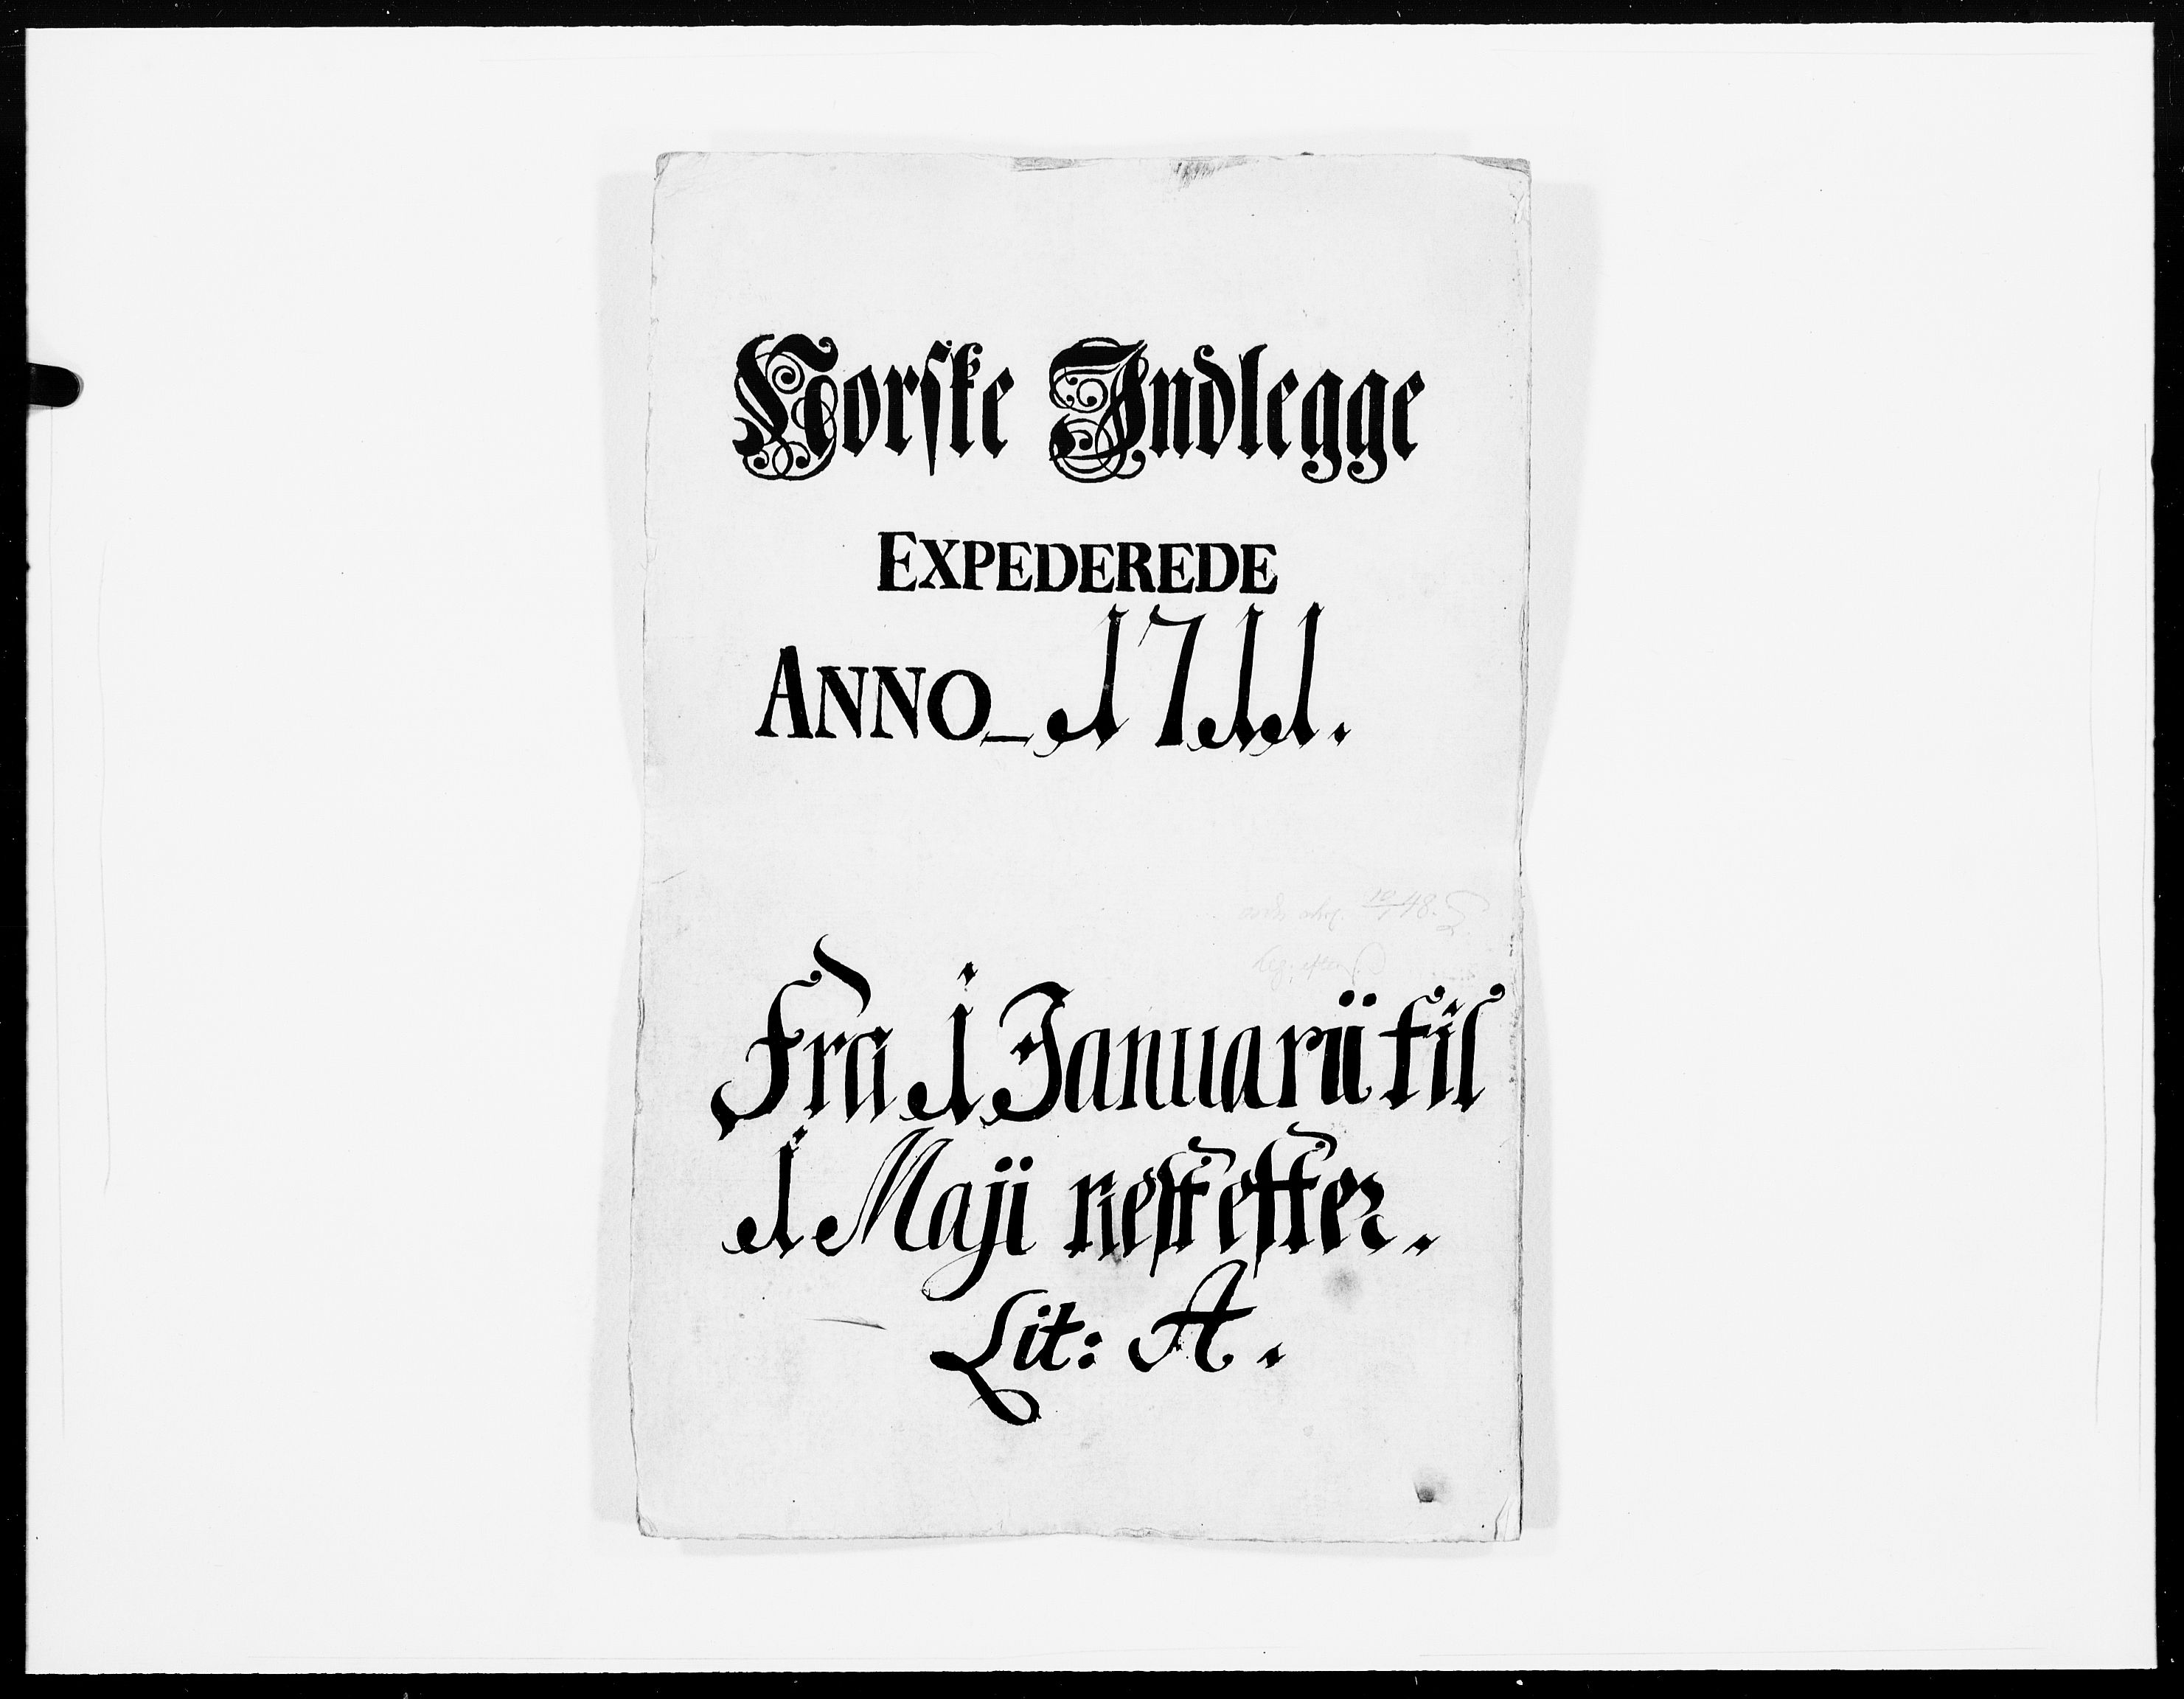 Norske Indlegge
EXPEDEREDE
ANNO_1711.
10/1 48.
Fra 1 Januarii til
1 Maji nestefter.
Lit: A.